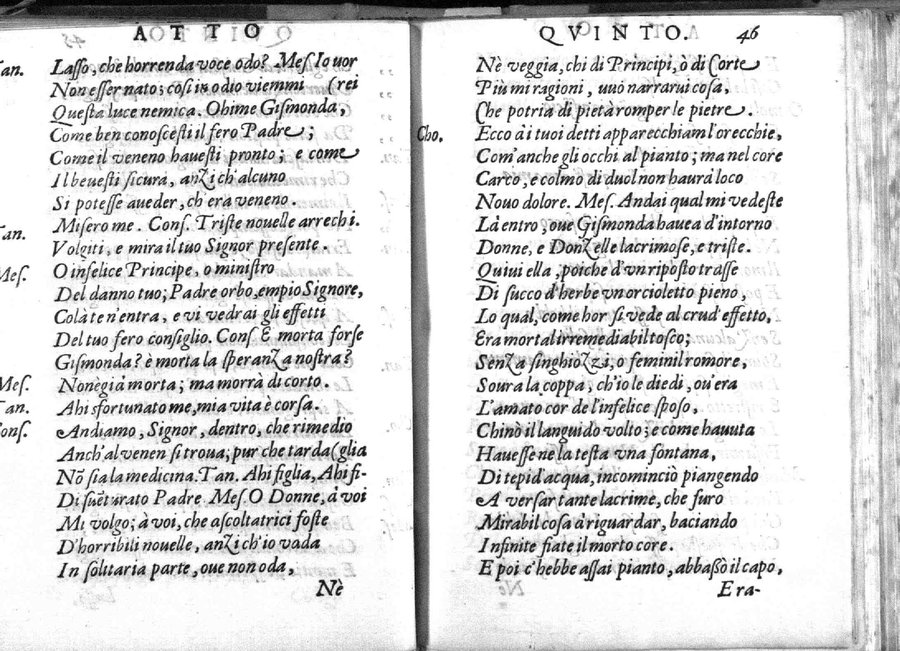 ATTO
Tan. Lasso, che horrenda voce odo? Mes. Io vor
Non esser nato; così in odio viemmi (rei
Questa luce nemica. Ohime Gismonda,
Come ben conoscesti il fero Padre;
Come il veneno hauesti pronto; e come
Il beuesti sicura, anzi ch'alcuno
Si potesse aueder, ch'era veneno.
Tan. Misero me. Cons. Triste nouelle arrechi.
Volgiti, e mira il tuo Signor presente.
Mes. O infelice Principe, o ministro
Del danno tuo; Padre orbo, empio Signore,
Colà te n'entra, e vi vedrai gli effetti
Del tuo fero consiglio. Cons. È morta forse
Gismonda? è morta la speranza nostra?
Mes. Non è già morta; ma morrà di corto.
Tan. Ahi sfortunato me, mia vita è corsa.
Cons. Andiamo, Signor, dentro, che rimedio
Anch'al venen si troua; pur che tarda (glia
Nō sia la medicina. Tan. Ahi figlia, Ahi fi-
Di suēturato Padre. Mes. O Donne, à voi
Mi volgo; à voi, che ascoltatrici foste
D'horribili nouelle, anzi ch'io vada
In solitaria parte, oue non oda,
Nè
QVINTO. 46
Nè veggia, chi di Principi, ò di Corte
Piu mi ragioni, vuò narrarui cosa,
Che potria di pietà romper le pietre.
Cho. Ecco ài tuoi detti apparecchiam l'orecchie,
Com'anche gli occhi al pianto; ma nel core
Carco, e colmo di duol non haurà loco
Nouo dolore. Mes. Andai qual mi vedeste
Là entro, oue Gismonda hauea d'intorno
Donne, e Donzelle lacrimose, e triste.
Quiui ella, poiche d'vn riposto trasse
Di succo d'herbe vn orcioletto pieno,
Lo qual, come hor si vede al crud'effetto,
Era mortal irremediabil tosco;
Senza singhiozzi, o feminil romore,
Soura la coppa, ch'io le diedi, ou'era
L'amato cor de l'infelice sposo,
Chinò il languido volto; e come hauuta
Hauesse ne la testa vna fontana,
Di tepid'acqua, incominciò piangendo
A versar tante lacrime, che furo
Mirabil cosa à riguardar, baciando
Infinite fiate il morto core.
E poi c'hebbe assai pianto, abbaßò il capo,
Era-